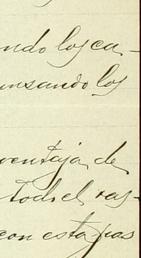 ndo los ca-
nsando los
ventaja de
todo el ras-
con esta pas